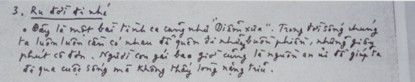 3. Ru đời đi nhé
• Đây là một bài tình ca cũng như "Diễm xưa". Trong đời sống chúng
ta luôn luôn cần có nhau để quên đi những buồn phiền, những giây
phút cô đơn. Người con gái bao giờ cũng là nguồn an ủi để giúp ta
đi qua cuộc sống mà không thấy lòng nặng trĩu.